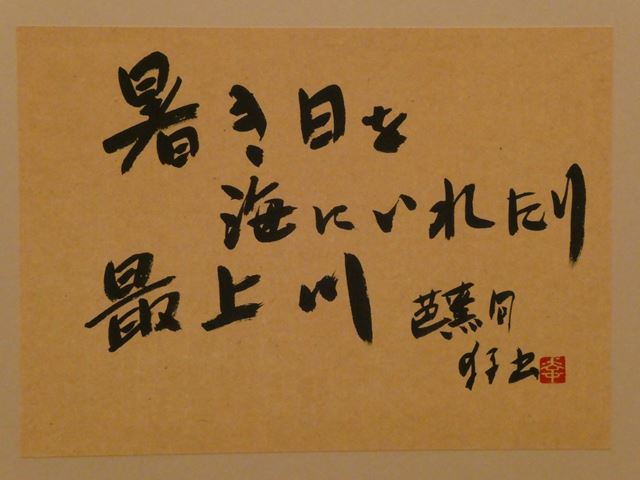 暑き日を
海にいれたり
最上川
芭蕉句